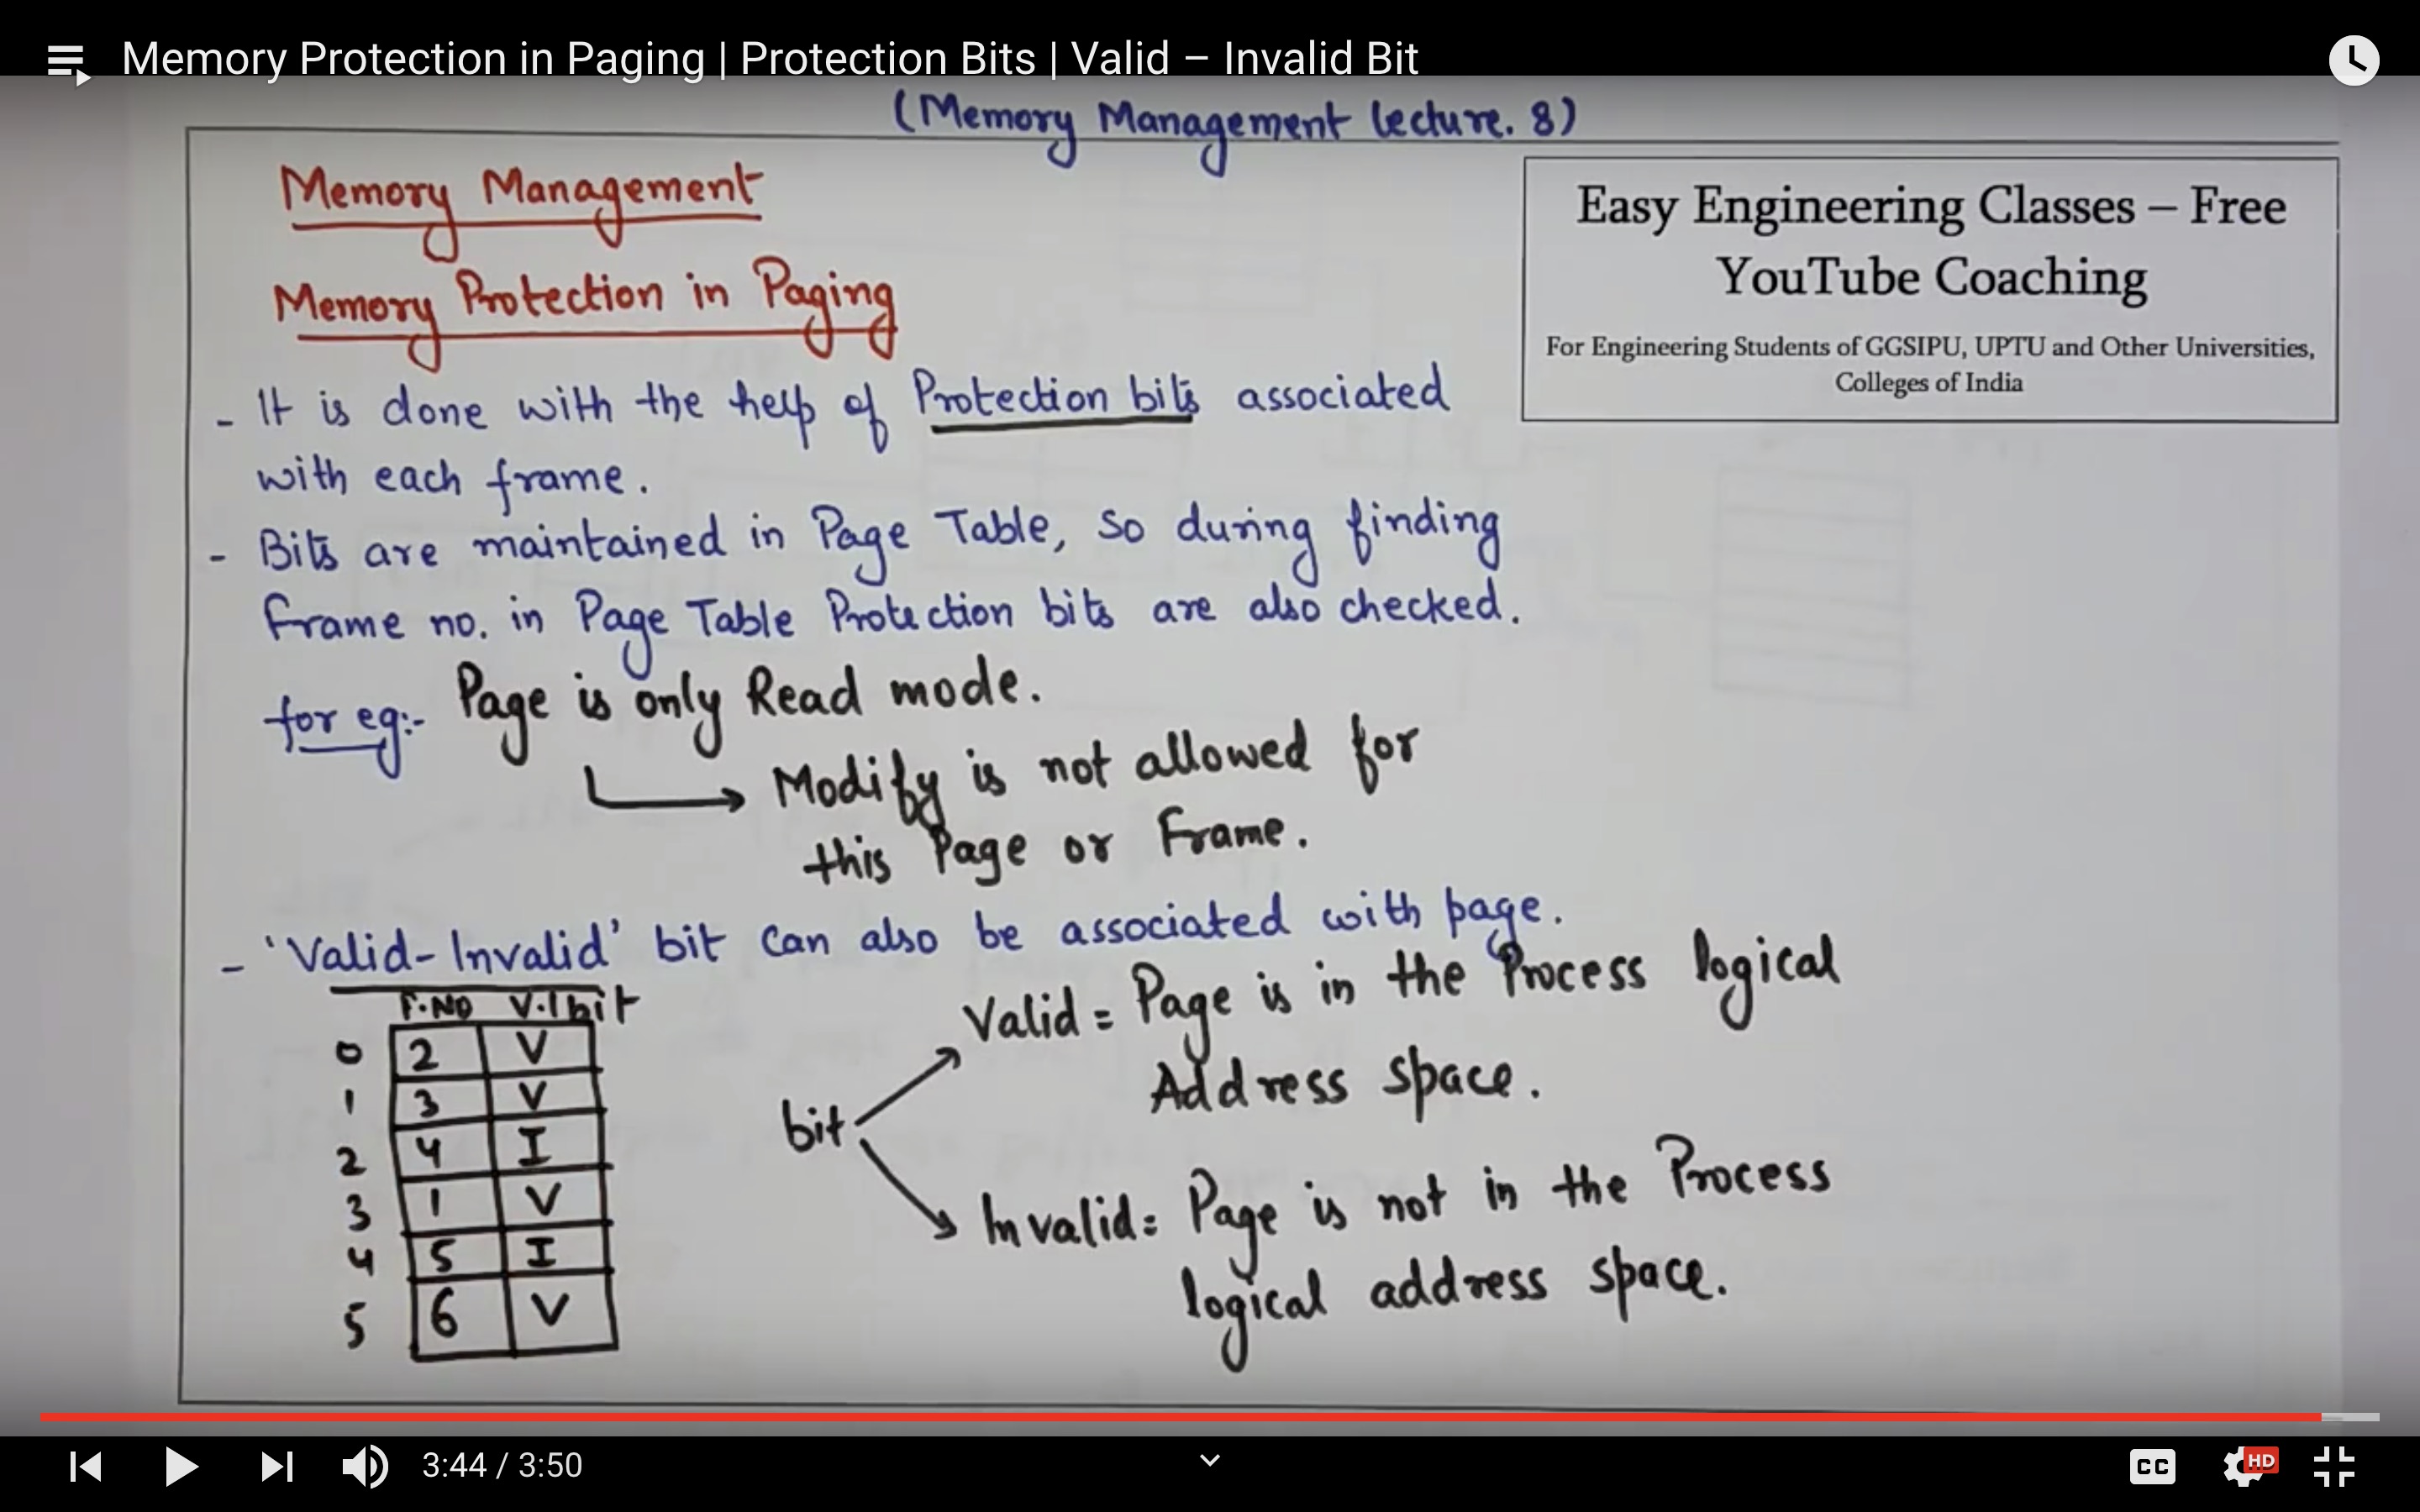 Memory Protection in Paging | Protection Bits | Valid – Invalid Bit
(Memory Management lecture. 8)
Memory Management
Easy Engineering Classes – Free
YouTube Coaching
For Engineering Students of GGSIPU, UPTU and Other Universities,
Colleges of India
Memory Protection in Paging
- It is done with the help of Protection bits associated
with each frame.
- Bits are maintained in Page Table, so during finding
frame no. in Page Table Protection bits are also checked.
for eg:- Page is only Read mode.
Modify is not allowed for
this Page or Frame.
- 'Valid-Invalid' bit can also be associated with page.
F.NO V.I bit
0 2 V
1 3 V
2 4 I
3 1 V
4 5 I
5 6 V
bit
Valid = Page is in the Process logical
Address space.
Invalid = Page is not in the Process
logical address space.
3:44 / 3:50
CC
HD